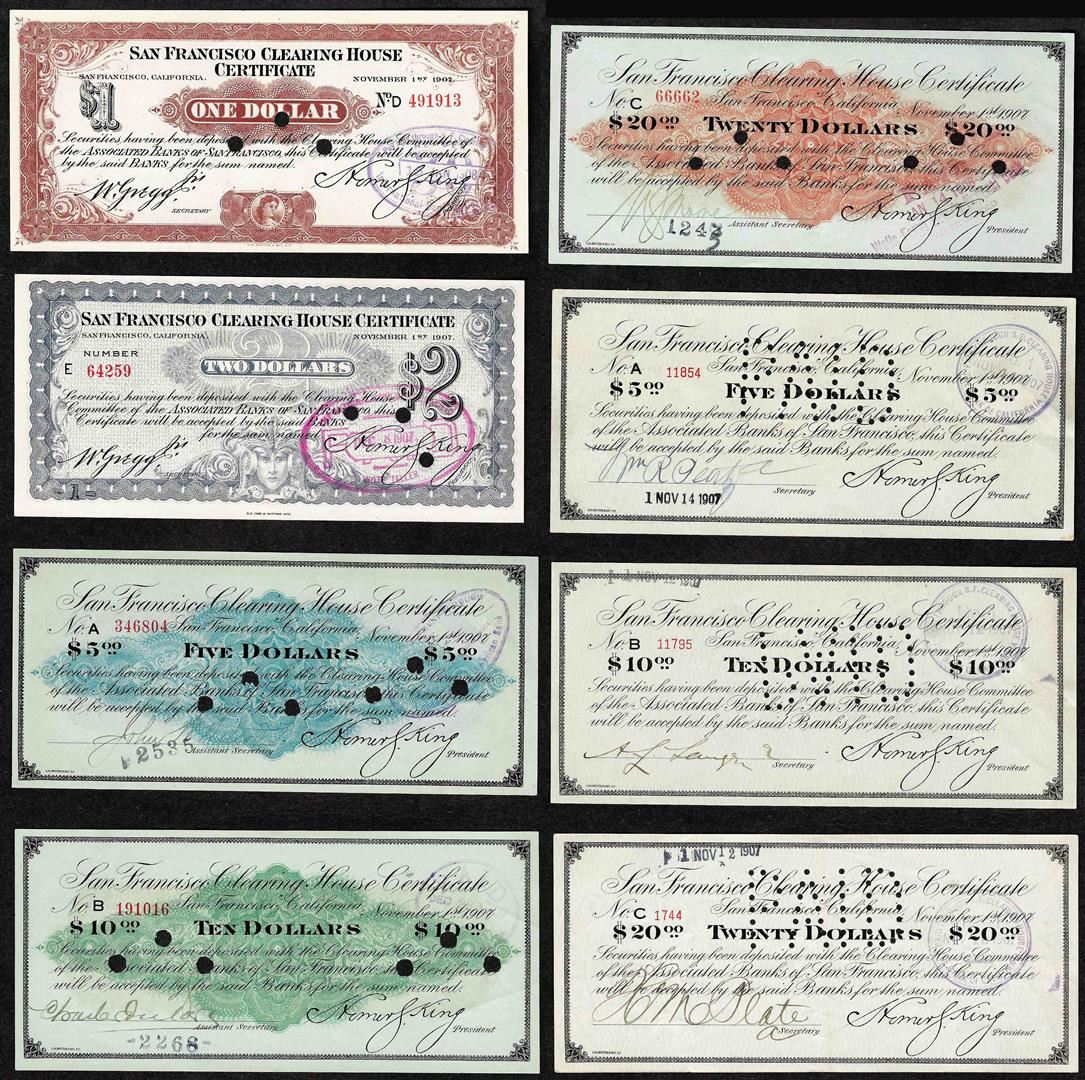 SAN FRANCISCO CLEARING HOUSE
CERTIFICATE
SAN FRANCISCO, CALIFORNIA. NOVEMBER 1ST 1907.
$1
ONE DOLLAR
No D 491913
Securities having been deposited with the Clearing House Committee of
the ASSOCIATED BANKS OF SAN FRANCISCO, this Certificate will be accepted
by the said BANKS, for the sum named.
W. Gregg Jr.
SECRETARY
Homer S. King
SAN FRANCISCO CLEARING HOUSE CERTIFICATE
SAN FRANCISCO, CALIFORNIA. NOVEMBER 1ST 1907.
NUMBER
E 64259
TWO DOLLARS
$2
Securities having been deposited with the Clearing House
Committee of the ASSOCIATED BANKS OF SAN FRANCISCO, this
Certificate will be accepted by the said BANKS
for the sum named
W. Gregg Jr.
Homer S. King
-1-
San Francisco Clearing House Certificate
No. A 346804 San Francisco, California, November 1st 1907
$5.00 FIVE DOLLARS $5.00
Securities having been deposited with the Clearing House Committee
of the Associated Banks of San Francisco, this Certificate
will be accepted by the said Banks for the sum named.
2535
Assistant Secretary
Homer S. King
President
San Francisco Clearing House Certificate
No. B 191016 San Francisco, California, November 1st 1907
$10.00 TEN DOLLARS $10.00
Securities having been deposited with the Clearing House Committee
of the Associated Banks of San Francisco, this Certificate
will be accepted by the said Banks for the sum named.
Assistant Secretary
-2268-
Homer S. King
President
San Francisco Clearing House Certificate
No. C 66662 San Francisco, California, November 1st 1907
$20.00 TWENTY DOLLARS $20.00
Securities having been deposited with the Clearing House Committee
of the Associated Banks of San Francisco, this Certificate
will be accepted by the said Banks for the sum named.
Assistant Secretary
Homer S. King
President
San Francisco Clearing House Certificate
No. A 11854 San Francisco, California, November 1st 1907
$5.00 FIVE DOLLARS $5.00
Securities having been deposited with the Clearing House Committee
of the Associated Banks of San Francisco, this Certificate
will be accepted by the said Banks for the sum named.
Secretary
Homer S. King
President
1 NOV 14 1907
San Francisco Clearing House Certificate
No. B 11795 San Francisco, California, November 1st 1907
$10.00 TEN DOLLARS $10.00
Securities having been deposited with the Clearing House Committee
of the Associated Banks of San Francisco, this Certificate
will be accepted by the said Banks for the sum named.
Secretary
Homer S. King
President
1 NOV 12 1907
San Francisco Clearing House Certificate
No. C 1744 San Francisco, California, November 1st 1907
$20.00 TWENTY DOLLARS $20.00
Securities having been deposited with the Clearing House Committee
of the Associated Banks of San Francisco, this Certificate
will be accepted by the said Banks for the sum named.
Secretary
Homer S. King
President